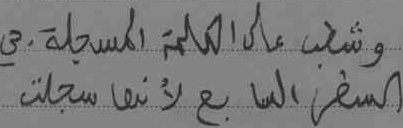 وشطب على الكلمة المسجلة . في
السطر السابع لأنها سجلت